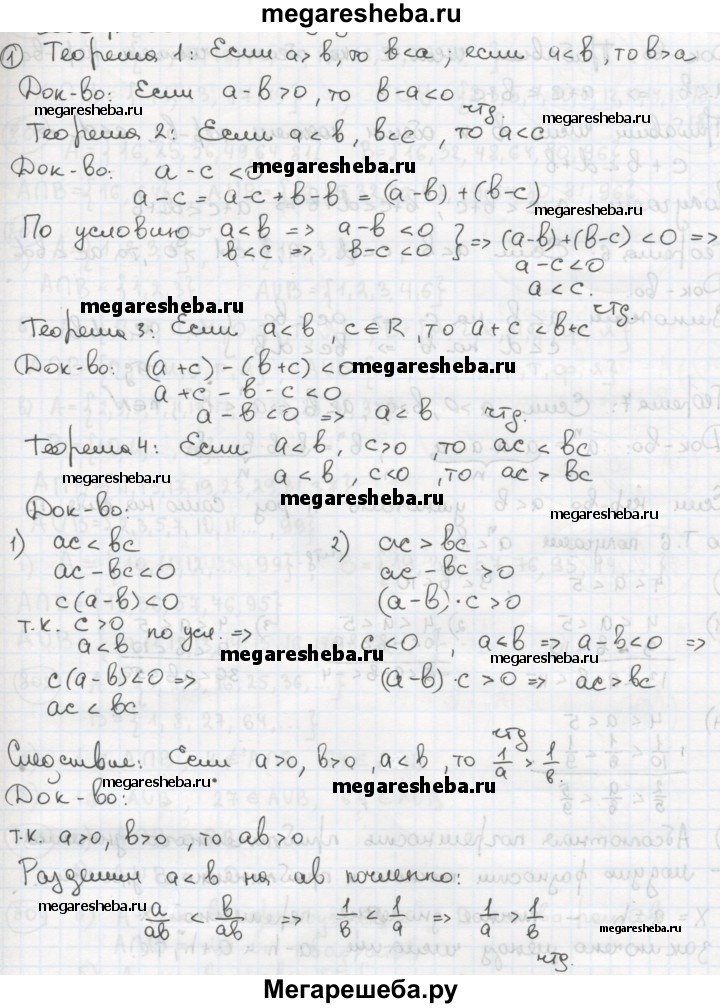 megaresheba.ru
① Теорема 1: Если a > b, то b < a; если a < b, то b > a
Док-во: Если a - b > 0, то b - a < 0
megaresheba.ru чтд.
Теорема 2: Если a < b, b < c, то a < c
Док-во: a - c < 0 megaresheba.ru
a - c = a - c + b - b = (a - b) + (b - c)
megaresheba.ru
По условию a < b => a - b < 0
b < c => b - c < 0 } => (a - b) + (b - c) < 0 =>
a - c < 0
a < c.
megaresheba.ru чтд.
Теорема 3: Если a < b, c ∈ R, то a + c < b + c
Док-во: (a + c) - (b + c) < 0 megaresheba.ru
a + c - b - c < 0
a - b < 0 => a < b чтд.
Теорема 4: Если a < b, c > 0, то ac < bc
a < b, c < 0, то ac > bc
megaresheba.ru megaresheba.ru
Док-во: megaresheba.ru
1) ac < bc 2) ac > bc
ac - bc < 0 ac - bc > 0
c(a - b) < 0 (a - b) · c > 0
т.к. c > 0
a < b по усл. => c < 0, a < b => a - b < 0 =>
megaresheba.ru megaresheba.ru
c(a - b) < 0 => (a - b) · c > 0 => ac > bc
ac < bc
чтд
Следствие: Если a > 0, b > 0, a < b, то 1/a > 1/b.
megaresheba.ru megaresheba.ru
Док-во:
т.к. a > 0, b > 0, то ab > 0
Разделим a < b на ab почленно:
megaresheba.ru
a/ab < b/ab => 1/b < 1/a => 1/a > 1/b
чтд.
Мегарешеба.ру